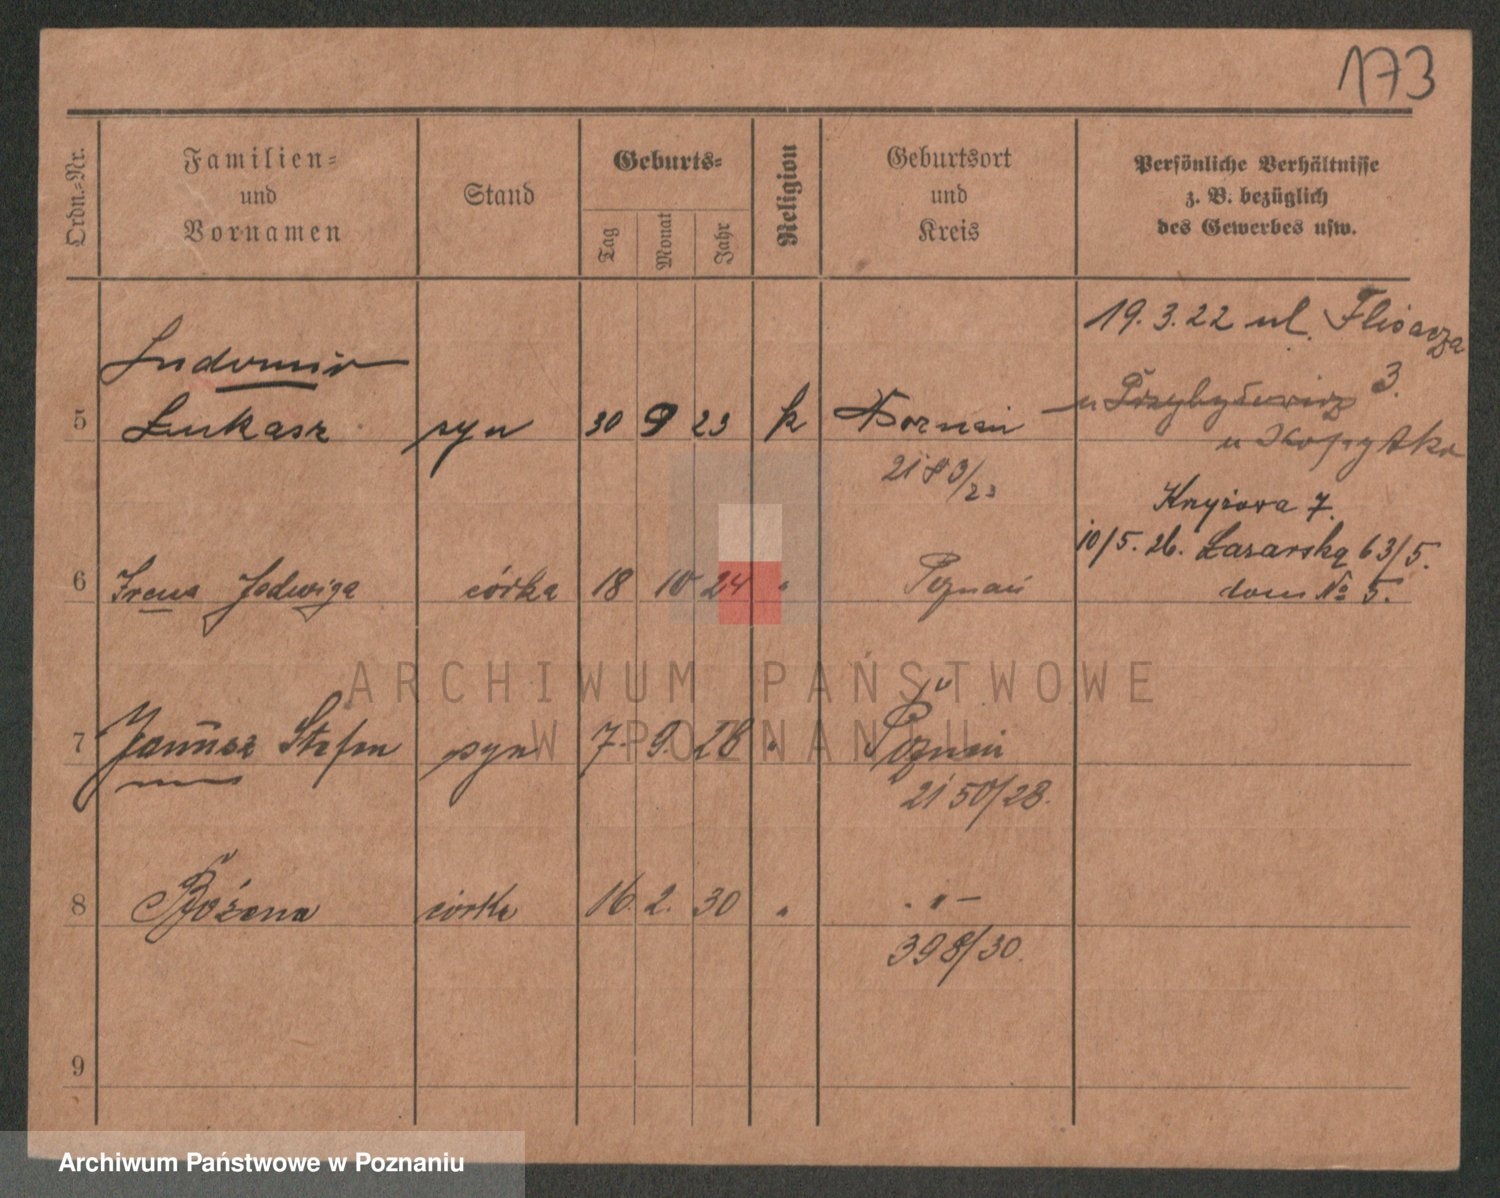 173
Ordn.=Nr.
Familien=
und
Vornamen
Stand
Geburts=
Tag
Monat
Jahr
Religion
Geburtsort
und
Kreis
Persönliche Verhältnisse
z. B. bezüglich
des Gewerbes usw.
19. 3. 22 ul.
3.
Ludomir
5 Łukasz syn 30 9 23 k Poznań
2183/23
Knyżowa 7.
10/5. 26. Łazarską 63/5.
6 Irena Jadwiga córka 18 10 24 " Poznań
dom № 5.
ARCHIWUM PAŃSTWOWE
W POZNANIU
7 Janusz Stefan syn 7. 9. 28 " Poznań
2150/28.
8 Bożena córka 16. 2. 30 " - " -
398/30.
9
Archiwum Państwowe w Poznaniu